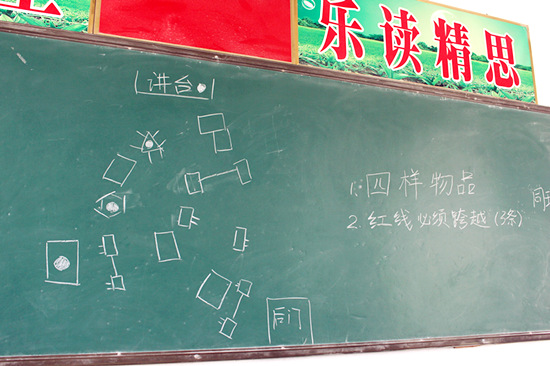 乐读精思
讲台
1. 四样物品
2. 红线必须跨越(3条)
同
后门